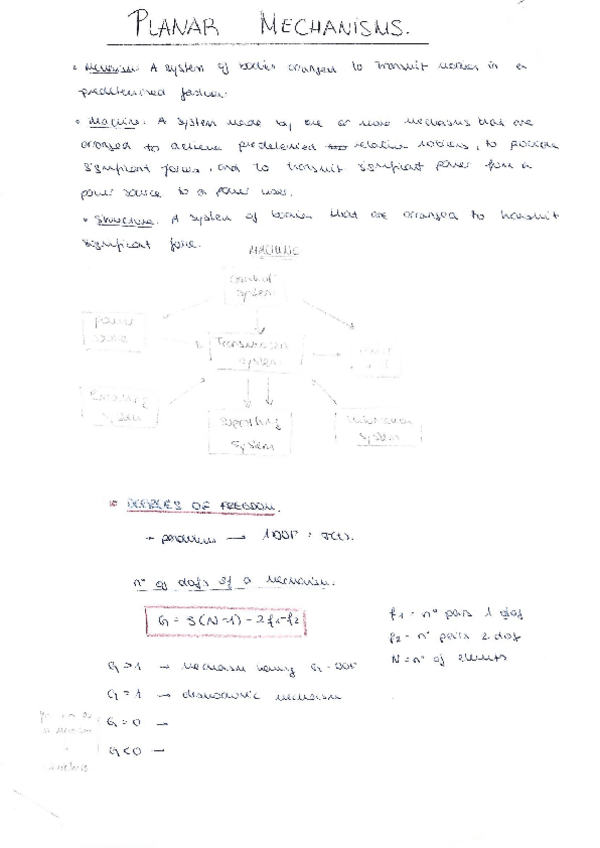 PLANAR MECHANISMS.
• Mechanism: A system of bodies arranged to transmit motion in a
predetermined fashion.
• Machine: A system made by one or more mechanisms that are
arranged to achieve predetermined relative motions, to provide
significant forces, and to transmit significant power from a
power source to a power user.
• Structure: A system of bodies that are arranged to transmit
significant force.
MACHINE
Control
system
power
source
Transmission
system
system
supporting
system
system
DEGREES OF FREEDOM.
→ pendulum → 1DOF:
nº of dofs of a mechanism.
G = 3(N-1) - 2f1-f2
f1 = nº pairs 1 dof
f2 = nº pairs 2 dof
N = nº of elements
G>1 → mechanism having G-DOF
G=1 → mechanism
G=0 →
G<0 →